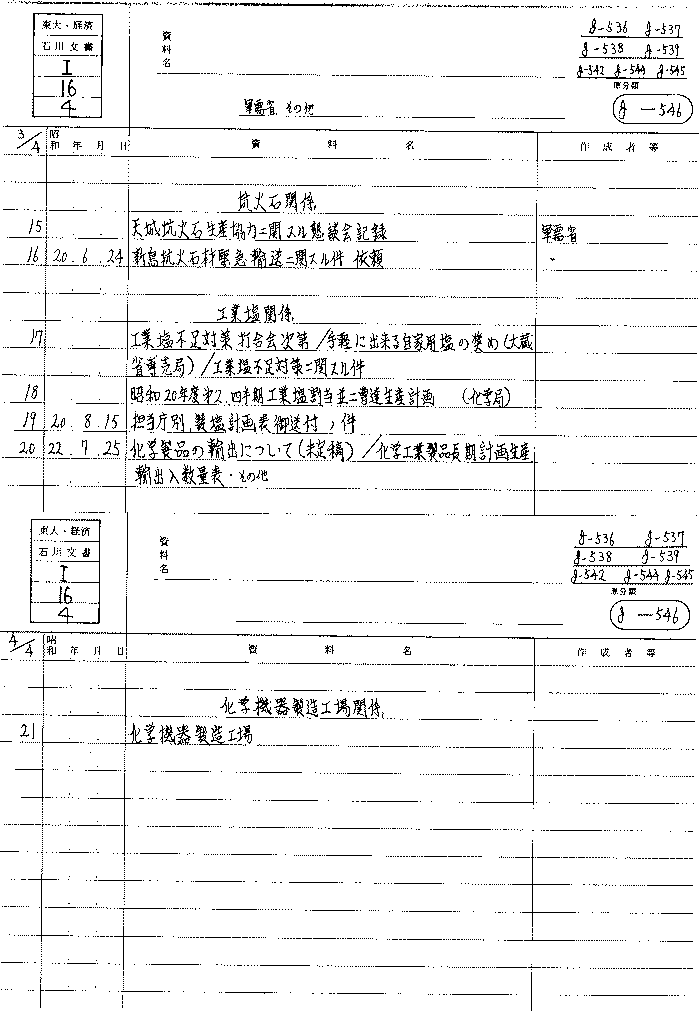 東大・経済
石川文書
I
16
4
資料名
軍需省 その他
J-536 J-537
J-538 J-539
J-542 J-544 J-545
原分類
J-546
3/4 昭和 年 月 日 資料名 作成者等
抗火石関係
15 天城抗火石生産協力ニ関スル懇談会記録 軍需省
16 20.6.24 新島抗火石材緊急輸送ニ関スル件 依頼 〃
工業塩関係
17 工業塩不足対策打合会次第/手軽に出来る自家用塩の奨め(大蔵
省専売局)/工業塩不足対策ニ関スル件
18 昭和20年度才2.四半期工業塩割当並ニ曹達生産計画 (化学局)
19 20.8.15 担当庁別製塩計画表御送付ノ件
20 22.7.25 化学製品の輸出について(未定稿)/化学工業製品長期計画生産
輸出入数量表・その他
東大・経済
石川文書
I
16
4
資料名
J-536 J-537
J-538 J-539
J-542 J-544 J-545
原分類
J-546
4/4 昭和 年 月 日 資料名 作成者等
化学機器製造工場関係
21 化学機器製造工場